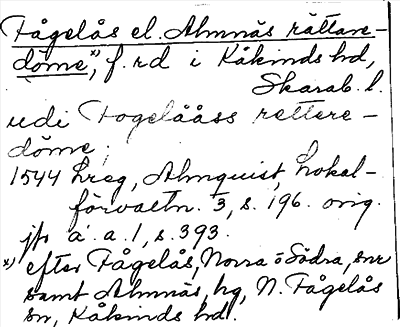 Fågelås el. Almnäs rättare-
döme x), f.rd i Kåkinds hd,
Skarab. l.
udi Fogelååss rettere-
döme;
1544 hreg, Almquist, Lokal-
förvaltn. 3, s. 196. orig.
jfr a. a. 1, s. 393.
x) efter Fågelås, Norra o Södra, snr
samt Almnäs, hg, N. Fågelås
sn, Kåkinds hd.